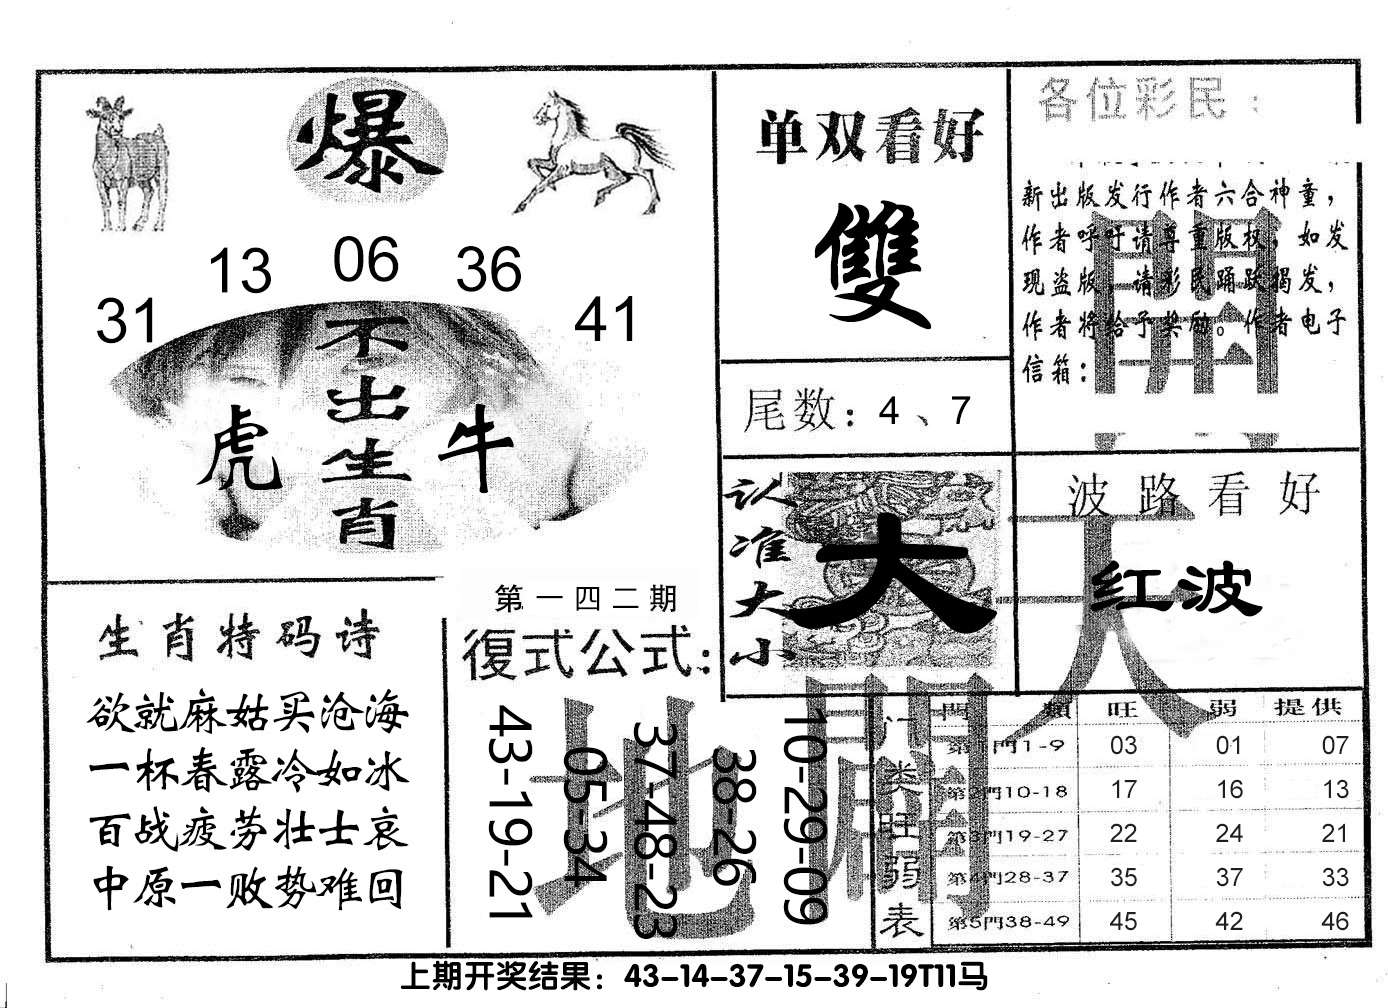 爆
13 06 36
31 41
不出生肖
虎 牛
单双看好
雙
尾数：4、7
各位彩民：
新出版发行作者六合神童，
作者呼吁请尊重版权，如发
现盗版，请彩民踊跃揭发，
作者将给予奖励。作者电子
信箱：
認准大小
大
波路看好
红波
生肖特码诗
欲就麻姑买沧海
一杯春露冷如冰
百战疲劳壮士哀
中原一败势难回
第一四二期
復式公式：
43-19-21
05-34
37-48-23
38-26
10-29-09
天
地
門类旺弱表
門類 旺 弱 提供
第1門1-9 03 01 07
第2門10-18 17 16 13
第3門19-27 22 24 21
第4門28-37 35 37 33
第5門38-49 45 42 46
上期开奖结果：43-14-37-15-39-19T11马